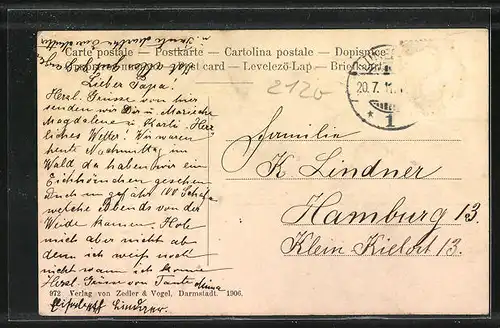 Carte postale — Postkarte — Cartolina postale — Dopisnice
card — Levelező-Lap —
2120
20.7.11.
* 1
Lieber Papa!
Herzl. Grüsse von hier
senden wir Dir u. Mariechen
Magdalene u. Karli. Herr-
liches Wetter! Wir waren
heute Nachmittag im
Wald da haben wir ein
Eichhörnchen gesehen
Und ungefähr 100 Schafe
welche Abends von der
Weide kamen. Hole
mich aber nicht ab
denn ich weiß noch
nicht wann ich komme
Herzl. Grüsse von Tante
Familie
K Lindner
Hamburg 13.
Klein Kielort 13.
972 Verlag von Zedler & Vogel, Darmstadt. 1906.
Lindner.